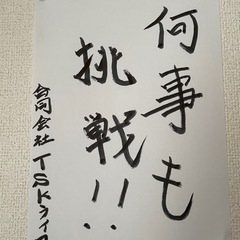 何事も
挑戦!!
合同会社TSKライフ